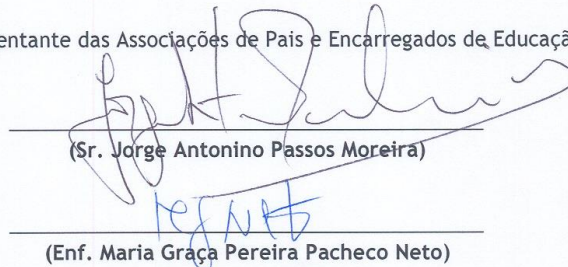 entante das Associações de Pais e Encarregados de Educaçã
(Sr. Jorge Antonino Passos Moreira)
(Enf. Maria Graça Pereira Pacheco Neto)